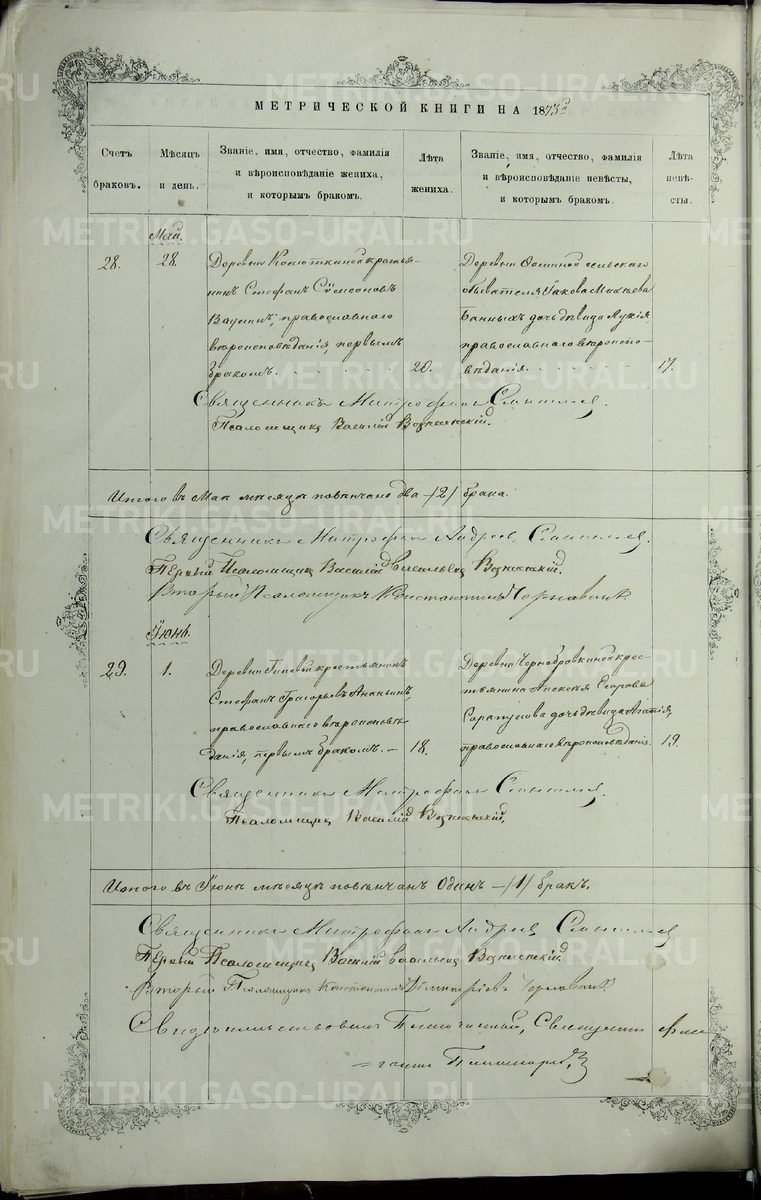 МЕТРИЧЕСКОЙ КНИГИ НА 1873й
Счетъ браковъ.
Мѣсяцъ и день.
Званіе, имя, отчество, фамилія и вѣроисповѣданіе жениха, и которымъ бракомъ.
Лѣта жениха.
Званіе, имя, отчество, фамилія и вѣроисповѣданіе невѣсты, и которымъ бракомъ.
Лѣта невѣсты.
Май.
28.
28.
Деревни крестья-
нинъ Стефанъ Сѵмеоновъ
православнаго
вѣроисповѣданія, первымъ
бракомъ.
20.
Деревни сельскаго
обывателя Іакова Михѣева
Банныхъ дочь дѣвица
православнаго вѣроиспо-
вѣданія.
17.
Священникъ Митрофанъ
Псаломщикъ Василій Вознесенскій.
Итого въ Маѣ мѣсяцѣ повѣнчано два /2/ брака.
Священникъ Митрофанъ Андреев
Первый Псаломщикъ Василій Васильевъ Вознесенскій.
Вторый Псаломщикъ Константинъ
Іюнь.
29.
1.
Деревни крестьянинъ
Стефанъ Григорьевъ Ананьинъ,
православнаго вѣроисповѣ-
данія, первымъ бракомъ.
18.
Деревни Чернобровкиной крес-
тьянина Алексѣя Егорова
Сарапулова дочь дѣвица Агафія,
православнаго вѣроисповѣданія.
19.
Священникъ Митрофанъ
Псаломщикъ Василій Вознесенскій.
Итого въ Іюнѣ мѣсяцѣ повѣнчанъ Одинъ /1/ бракъ.
Священникъ Митрофанъ Андреев
Первый Псаломщикъ Василій Васильевъ Вознесенскій
Вторый Псаломщикъ Константинъ Димитріевъ
Свидѣтельствовалъ Благочинный, Священникъ
METRIKI.GASO-URAL.RU